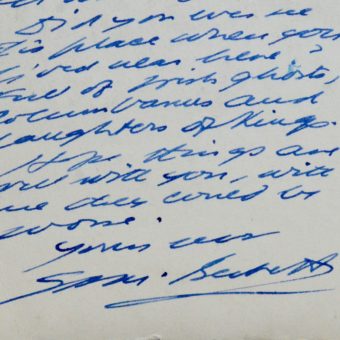 Did you
this place when you
lived near here,
full of Irish ghosts,
Columbanus and
daughters of Kings.
Hope things are
well with you, with
me they could be
worse.
Yours ever
Sam. Beckett